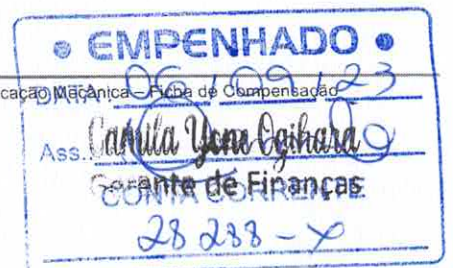 • EMPENHADO •
DATA 06 / 09 / 23
cação Mecânica – Ficha de Compensação
Ass. Camila Yone Ogihara
Gerente de Finanças
CONTA CORRENTE
28 288 - X